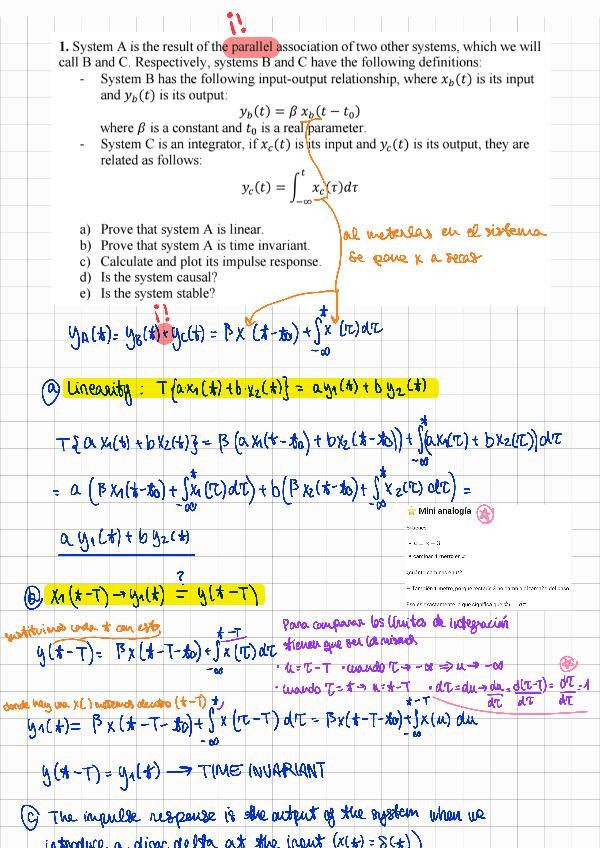 ¡!
1. System A is the result of the parallel association of two other systems, which we will
call B and C. Respectively, systems B and C have the following definitions:
- System B has the following input-output relationship, where x_b(t) is its input
and y_b(t) is its output:
y_b(t) = β x_b(t − t_0)
where β is a constant and t_0 is a real parameter.
- System C is an integrator, if x_c(t) is its input and y_c(t) is its output, they are
related as follows:
y_c(t) = ∫_{−∞}^{t} x_c(τ)dτ
a) Prove that system A is linear.
b) Prove that system A is time invariant.
c) Calculate and plot its impulse response.
d) Is the system causal?
e) Is the system stable?
al meterlas en el sistema
se pone x a secas
¡!
y_A(t) = y_B(t) + y_C(t) = βx(t−t_0) + ∫_{−∞}^{t} x(τ)dτ
a) Linearity: T{a·x_1(t) + b·x_2(t)} = ay_1(t) + by_2(t)
T{ax_1(t) + bx_2(t)} = β(ax_1(t−t_0) + bx_2(t−t_0)) + ∫_{−∞}^{t} (ax_1(τ) + bx_2(τ))dτ
= a(βx_1(t−t_0) + ∫_{−∞}^{t} x_1(τ)dτ) + b(βx_2(t−t_0) + ∫_{−∞}^{t} x_2(τ)dτ) =
ay_1(t) + by_2(t)
Mini analogía
b) x_1(t−T) → y_1(t) =? y(t−T)
sustituimos cada t con esto
y(t−T) = βx(t−T−t_0) + ∫_{−∞}^{t−T} x(τ)dτ
Para comparar los límites de integración
tienen que ser los mismos
· u = τ−T · cuando τ → −∞ ⇒ u → −∞
· cuando τ = t → u = t−T · dτ = du → du/dτ = d(τ−T)/dτ = dτ/dτ = 1
donde hay una x( ) metemos dentro (t−T)
y_1(t) = βx(t−T−t_0) + ∫_{−∞}^{t} x(τ−T)dτ = βx(t−T−t_0) + ∫_{−∞}^{t−T} x(u)du
y(t−T) = y_1(t) → TIME INVARIANT
c) The impulse response is the output of the system when we
introduce a dirac delta at the input (x(t) = δ(t))